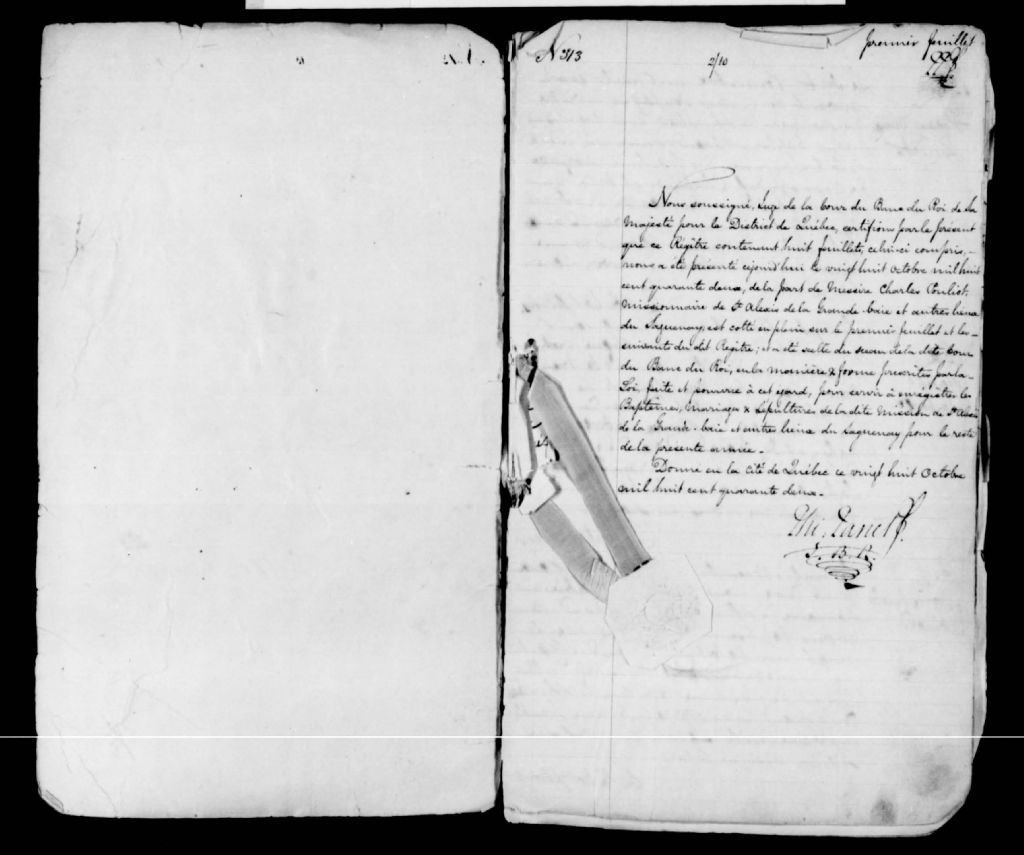 No 313
2/10
premier feuillet
Nous soussigné, Juge de la Cour du Banc du Roi de Sa
Majesté pour le District de Québec, certifions par le présent
que ce Régître contenant huit feuillets, celui-ci compris,
nous a été présenté cejourd'hui le vingt huit Octobre mil huit
cent quarante deux, de la part de Messire Charles Pouliot,
Missionnaire de St Alexis de la Grande-baie et autres lieux
du Saguenay, est cotté en plein sur le premier feuillet et les
suivants du dit Régître; et a été scellé du sceau de la dite Cour
du Banc du Roi, en la manière & forme prescrites par la
Loi, faite et pourvue à cet égard, pour servir à enrégistrer les
Baptêmes, Mariages & Sépultures de la dite Mission de St Alexis
de la Grande-baie et autres lieux du Saguenay pour le reste
de la présente année.
Donné en la Cité de Québec ce vingt huit Octobre
mil huit cent quarante deux.
Phi. Panet
J. B. R.